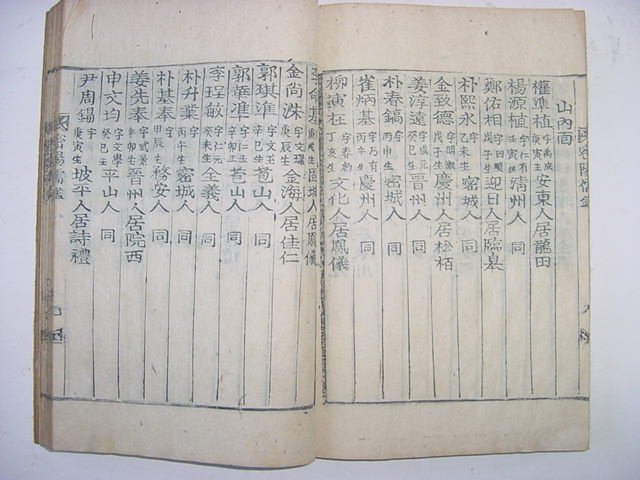 山內面
權準植 字禹成 庚寅生 安東人居龍田
楊源植 字仁有 壬寅生 淸州人 同
鄭佑相 字四順 戊子生 迎日人居臨皋
朴熙永 乙未生 密城人 同
金致德 戊子生 慶州人居松栢
姜淳遠 字成元 癸亥生 晉州人 同
朴春鎬 丙午生 密城人 同
崔炳基 字乃有 丙午生 慶州人 同
柳寅枉 字春約 丁亥生 文化人居鳳儀
固城人居鳳儀
金尙洙 字文瑞 庚辰生 金海人居佳仁
郭琪準 字文玉 辛巳生 苞山人 同
郭華準 字仁玉 辛卯生 苞山人 同
李珵敏 字仁元 癸未生 全義人 同
朴升業 丙午生 密城人 同
朴基奉 甲辰生 務安人 同
姜先奉 字武彔 辛卯生 晉州人居院西
申文均 字文學 癸巳生 平山人 同
尹周錫 庚寅生 坡平人居詩禮
九